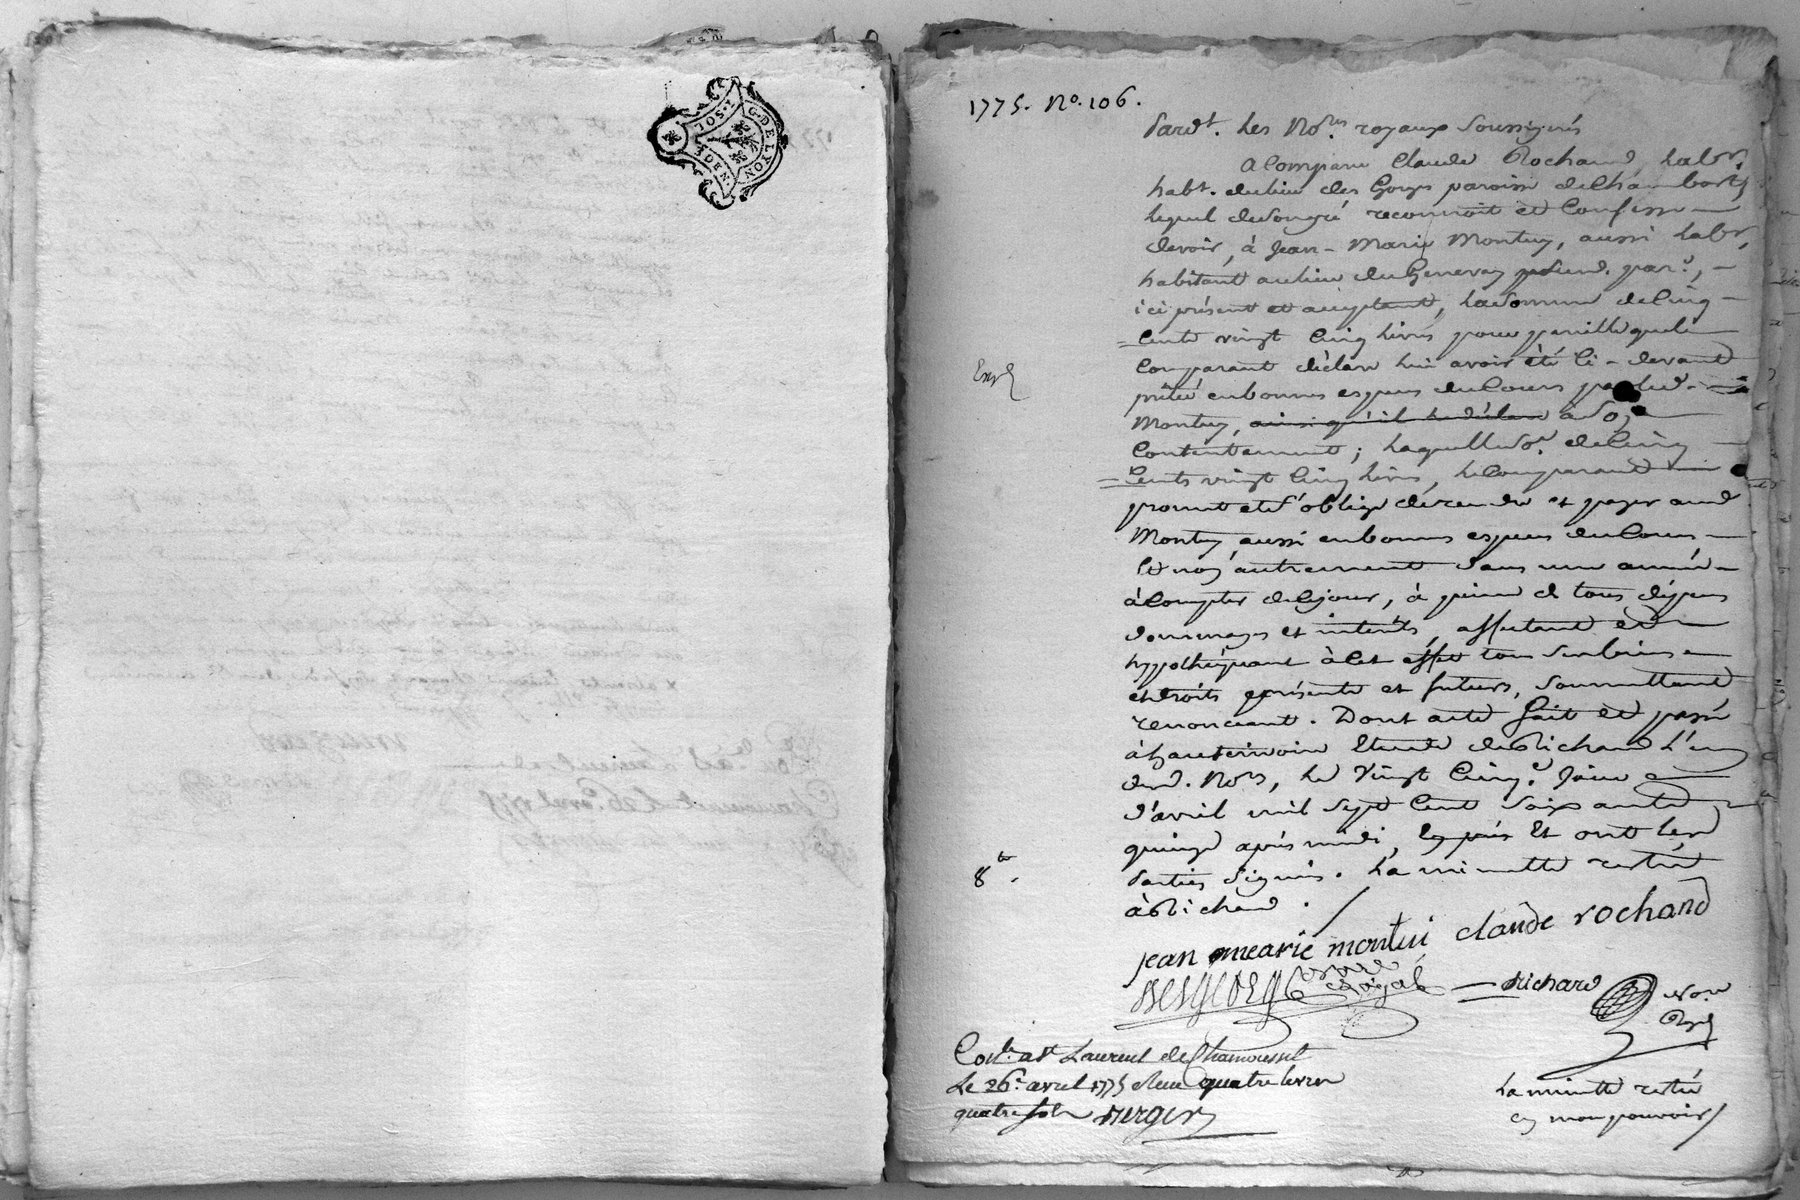 G. DE LYON
1. SOL. 4. DEN.
1775. No. 106.
Pardt. les Nores. royaux soussignés
a comparu Claude Rochand, labr.
habt. du lieu des Gorges paroisse de Chambost
lequel de son gré reconnoit et confesse
devoir, à Jean-Marie Montuy, aussi labr,
habitant au lieu du Genevay susd. par.e,
ici présent et acceptant, la somme de cinq
= cents vingt cinq livres pour pareille que le
comparant déclare lui avoir été ci-devant
prêtée en bonnes espèces du cours par led.
Montuy, ainsi qu'il le déclare à son
contentement; laquelle so.e de cinq
= cents vingt cinq livres, le comparant
promet et s'oblige de rendre et payer aud.
Montuy aussi en bonnes espèces du cours
et non autrement dans une année
à compter de ce jour, à peine de tous dépens
dommages et intérêts, affectant et
hypothéquant à cet effet tous ses biens
et droits présents et futurs, soumettant
renonceant. Dont acte fait et passé
à hauterivoire Etude de Richard l'un
desd. Nores, le vingt cinq.e Jour
d'avril mil sept cent soixante
quinze après midi, et ont lesd.
parties signé. La minutte restée
à Richard.
Expé
8te.
jean mearie montui claude rochand
DESGEORGE nore royal Richard Nore
Royal
Conle. a St Laurent de Chamousset
Le 26e. avril 1775 Reçu quatre livres
quatre sols
La minutte restée
en mon pouvoir